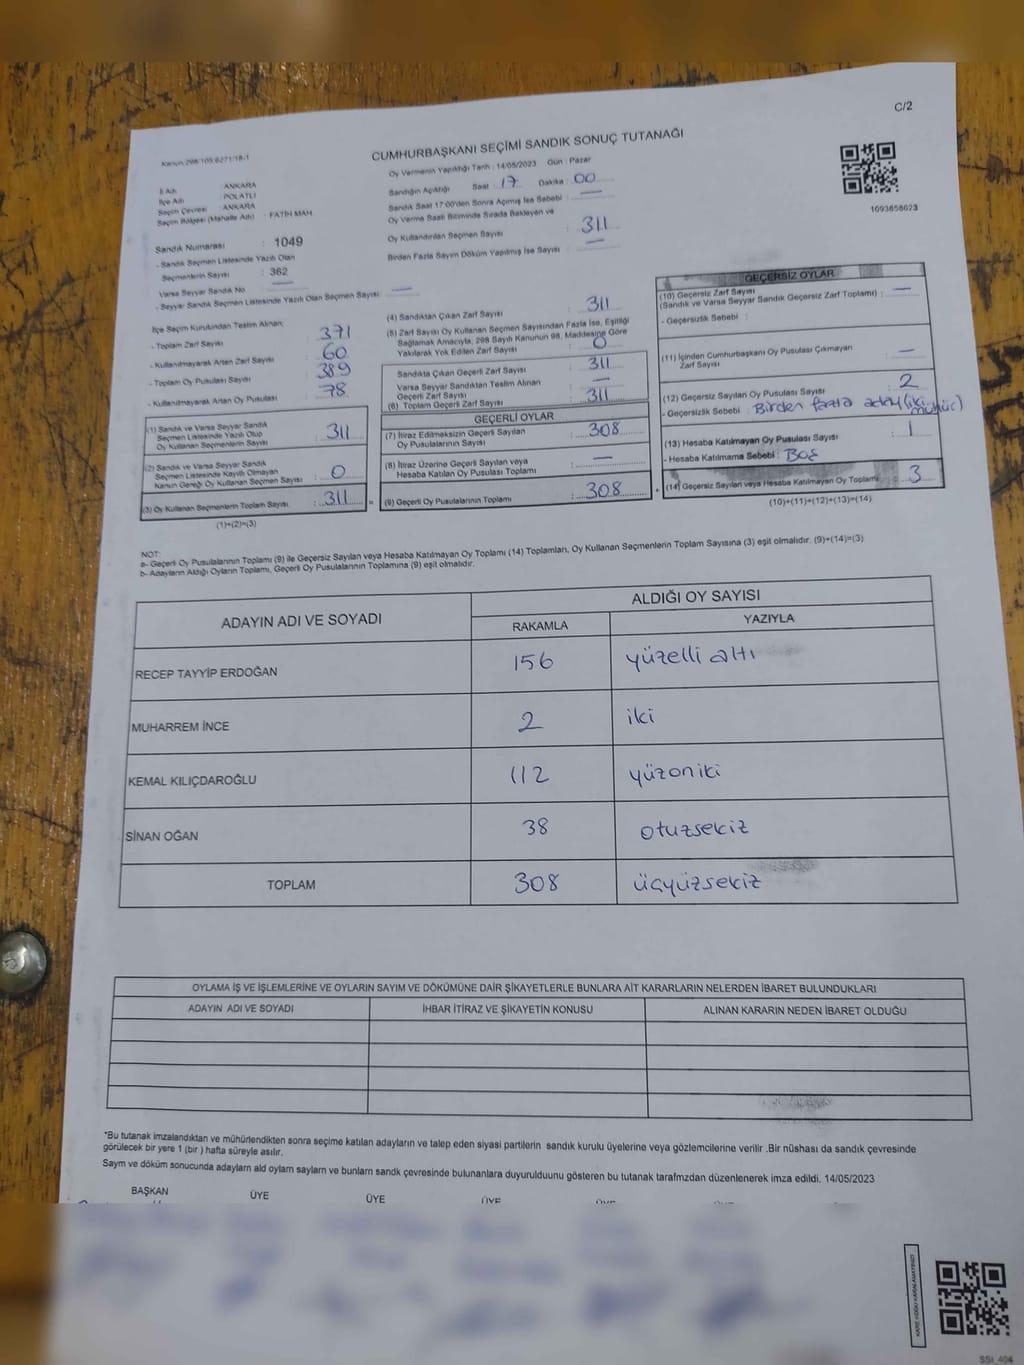 C/2
Kanun:298/105,6271/18-1
CUMHURBAŞKANI SEÇİMİ SANDIK SONUÇ TUTANAĞI
Oy Vermenin Yapıldığı Tarih : 14/05/2023 Gün : Pazar
İl Adı : ANKARA
İlçe Adı : POLATLI
Seçim Çevresi : ANKARA
Seçim Bölgesi (Mahalle Adı) : FATİH MAH.
Sandığın Açıldığı Saat : 17 Dakika : 00
Sandık Saat 17:00'den Sonra Açılmış İse Sebebi : —
Oy Verme Saati Bitiminde Sırada Bekleyen ve
Oy Kullandırılan Seçmen Sayısı : 311
Birden Fazla Sayım Döküm Yapılmış İse Sayısı : —
1093656023
Sandık Numarası : 1049
- Sandık Seçmen Listesinde Yazılı Olan
Seçmenlerin Sayısı : 362
Varsa Seyyar Sandık No —
- Seyyar Sandık Seçmen Listesinde Yazılı Olan Seçmen Sayısı : —
İlçe Seçim Kurulundan Teslim Alınan;
- Toplam Zarf Sayısı : 371
- Kullanılmayarak Artan Zarf Sayısı : 60
- Toplam Oy Pusulası Sayısı : 389
- Kullanılmayarak Artan Oy Pusulası : 78
(1) Sandık ve Varsa Seyyar Sandık
Seçmen Listesinde Yazılı Olup
Oy Kullanan Seçmenlerin Sayısı : 311
(2) Sandık ve Varsa Seyyar Sandık
Seçmen Listesinde Kayıtlı Olmayan
Kanun Gereği Oy Kullanan Seçmen Sayısı : 0
(3) Oy Kullanan Seçmenlerin Toplam Sayısı : 311 =
(1)+(2)=(3)
(4) Sandıktan Çıkan Zarf Sayısı : 311
(5) Zarf Sayısı Oy Kullanan Seçmen Sayısından Fazla İse, Eşitliği
Sağlamak Amacıyla, 298 Sayılı Kanunun 98. Maddesine Göre
Yakılarak Yok Edilen Zarf Sayısı : 0
Sandıkta Çıkan Geçerli Zarf Sayısı : 311
Varsa Seyyar Sandıktan Teslim Alınan
Geçerli Zarf Sayısı : —
(6) Toplam Geçerli Zarf Sayısı : 311
GEÇERLİ OYLAR
(7) İtiraz Edilmeksizin Geçerli Sayılan
Oy Pusulalarının Sayısı : 308
(8) İtiraz Üzerine Geçerli Sayılan veya
Hesaba Katılan Oy Pusulası Toplamı : —
(9) Geçerli Oy Pusulalarının Toplamı : 308 +
GEÇERSİZ OYLAR
(10) Geçersiz Zarf Sayısı
(Sandık ve Varsa Seyyar Sandık Geçersiz Zarf Toplamı) : —
- Geçersizlik Sebebi :
(11) İçinden Cumhurbaşkanı Oy Pusulası Çıkmayan
Zarf Sayısı : —
(12) Geçersiz Sayılan Oy Pusulası Sayısı : 2
- Geçersizlik Sebebi : Birden fazla aday (iki mühür)
(13) Hesaba Katılmayan Oy Pusulası Sayısı : 1
- Hesaba Katılmama Sebebi : Boş
(14) Geçersiz Sayılan veya Hesaba Katılmayan Oy Toplamı : 3
(10)+(11)+(12)+(13)=(14)
NOT:
a- Geçerli Oy Pusulalarının Toplamı (9) ile Geçersiz Sayılan veya Hesaba Katılmayan Oy Toplamı (14) Toplamları, Oy Kullanan Seçmenlerin Toplam Sayısına (3) eşit olmalıdır. (9)+(14)=(3)
b- Adayların Aldığı Oyların Toplamı, Geçerli Oy Pusulalarının Toplamına (9) eşit olmalıdır.
ADAYIN ADI VE SOYADI ALDIĞI OY SAYISI
RAKAMLA YAZIYLA
RECEP TAYYİP ERDOĞAN 156 yüzelli altı
MUHARREM İNCE 2 iki
KEMAL KILIÇDAROĞLU 112 yüzoniki
SİNAN OĞAN 38 otuzsekiz
TOPLAM 308 üçyüzsekiz
OYLAMA İŞ VE İŞLEMLERİNE VE OYLARIN SAYIM VE DÖKÜMÜNE DAİR ŞİKAYETLERLE BUNLARA AİT KARARLARIN NELERDEN İBARET BULUNDUKLARI
ADAYIN ADI VE SOYADI İHBAR İTİRAZ VE ŞİKAYETİN KONUSU ALINAN KARARIN NEDEN İBARET OLDUĞU
*Bu tutanak imzalandıktan ve mühürlendikten sonra seçime katılan adayların ve talep eden siyasi partilerin sandık kurulu üyelerine veya gözlemcilerine verilir .Bir nüshası da sandık çevresinde
görülecek bir yere 1 (bir ) hafta süreyle asılır.
Saym ve döküm sonucunda adayların ald oylarn saylarn ve bunların sandk çevresinde bulunanlara duyurulduunu gösteren bu tutanak tarafmzdan düzenlenerek imza edildi. 14/05/2023
BAŞKAN ÜYE ÜYE ÜYE
KARE KODU KARALAMAYINIZ!
SSI_404